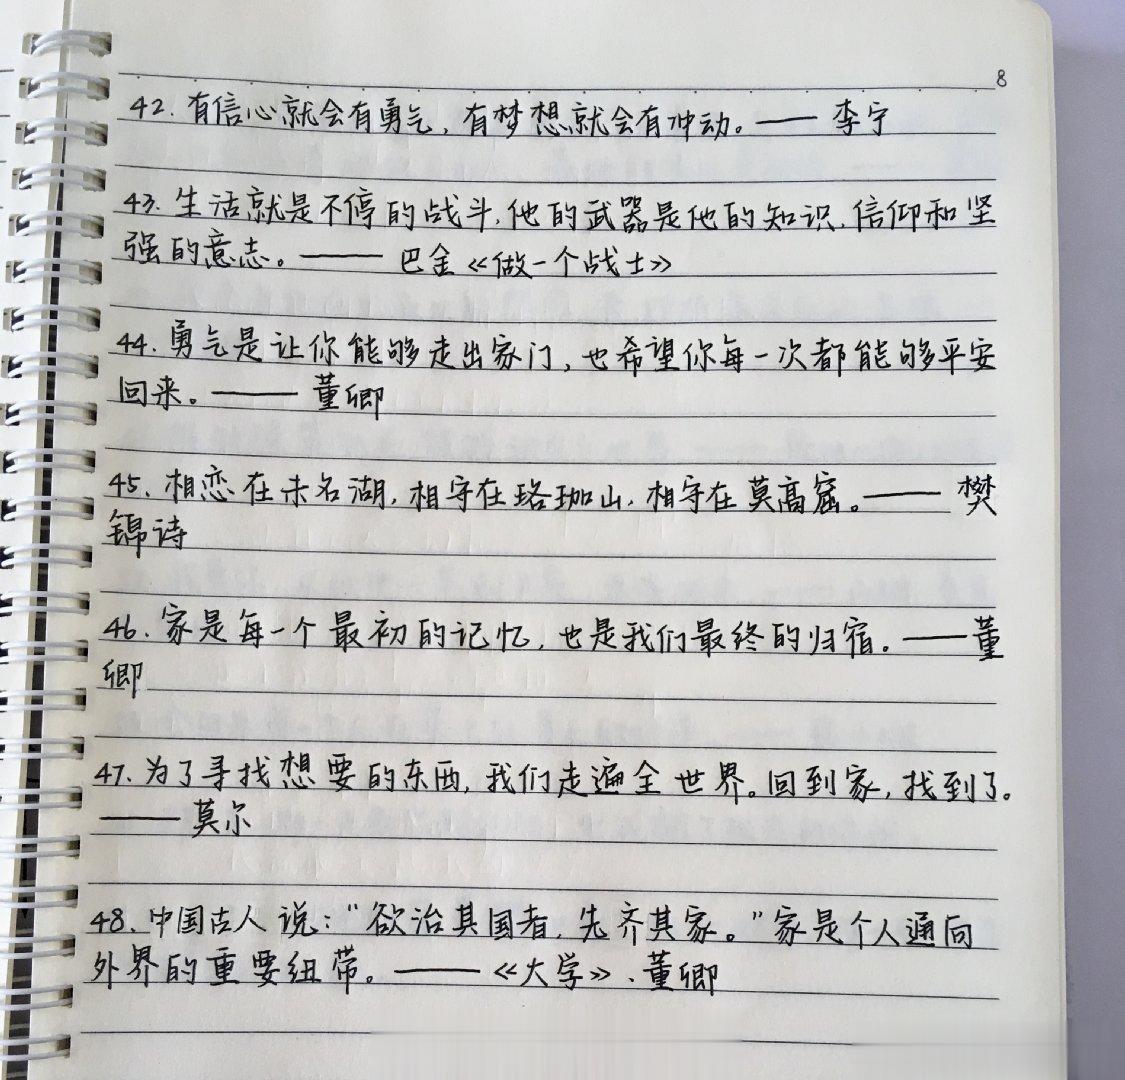 8
42. 有信心就会有勇气, 有梦想就会有冲动。—— 李宁
43. 生活就是不停的战斗, 他的武器是他的知识, 信仰和坚
强的意志。—— 巴金《做一个战士》
44. 勇气是让你能够走出家门, 也希望你每一次都能够平安
回来。—— 董卿
45. 相恋在未名湖, 相守在珞珈山, 相守在莫高窟。—— 樊
锦诗
46. 家是每一个最初的记忆, 也是我们最终的归宿。——董
卿
47. 为了寻找想要的东西, 我们走遍全世界。回到家, 找到了。
—— 莫尔
48. 中国古人说:"欲治其国者, 先齐其家。"家是个人通向
外界的重要纽带。——《大学》、董卿